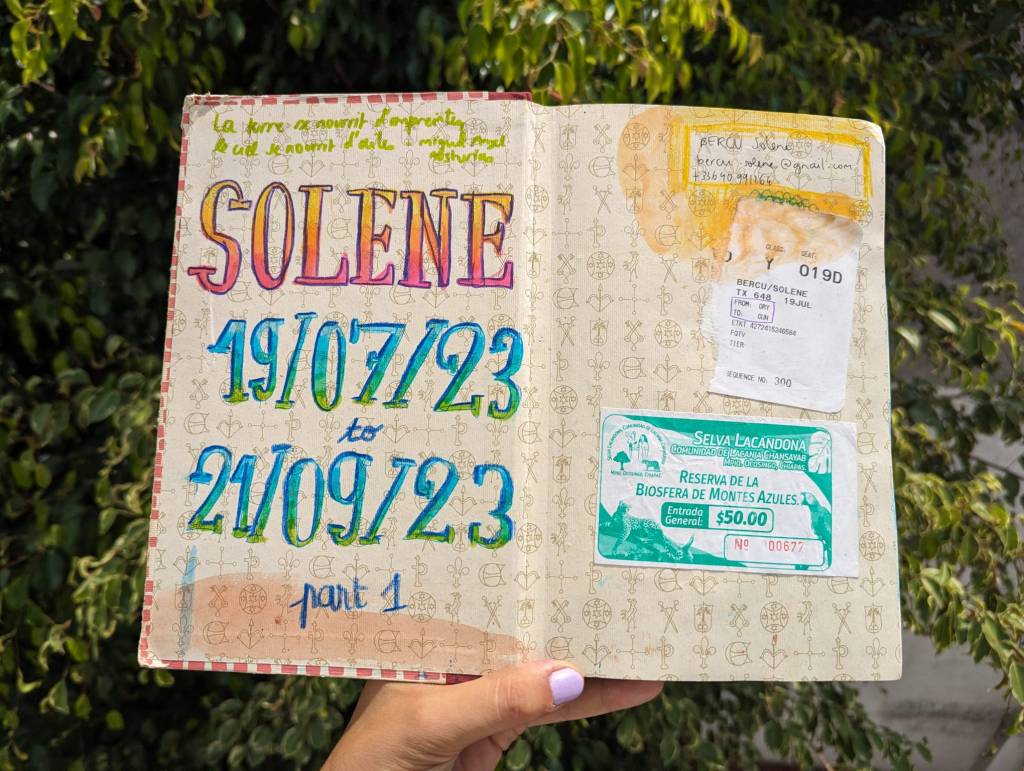 La terre se nourrit d'empreintes
le ciel se nourrit d'aile - Miguel Angel
Asturias
SOLENE
19/07/23
to
21/09/23
part 1
BERCU Solene
bercu.solene@gmail.com
CLASS SEAT:
Y 019D
BERCU/SOLENE
TX 648 19JUL
FROM: ORY
TO: CUN
ETKT 4272416246564
FQTV
TIER:
SEQUENCE NO: 300
SELVA LACANDONA
COMUNIDAD DE LACANJA CHANSAYAB
MPIO. OCOSINGO, CHIAPAS.
RESERVA DE LA
BIOSFERA DE MONTES AZULES.
Entrada
General: $50.00
Nº 00677